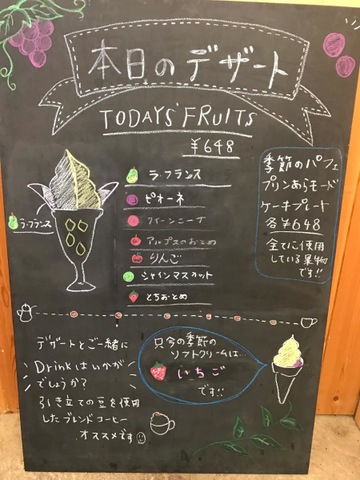 本日のデザート
TODAYS' FRUITS
¥648
ラ・フランス
ピオーネ
クイーンニーナ
アルプスのおとめ
りんご
シャインマスカット
とちおとめ
ラ・フランス
季節のパフェ
プリンあらモード
ケーキプレート
各¥648
全てに使用
している果物
です!!
デザートとご一緒に
Drinkはいかが
でしょうか?
引き立ての豆を使用
したブレンドコーヒー
オススメです
只今の季節の
ソフトクリームは…
いちご
です!!